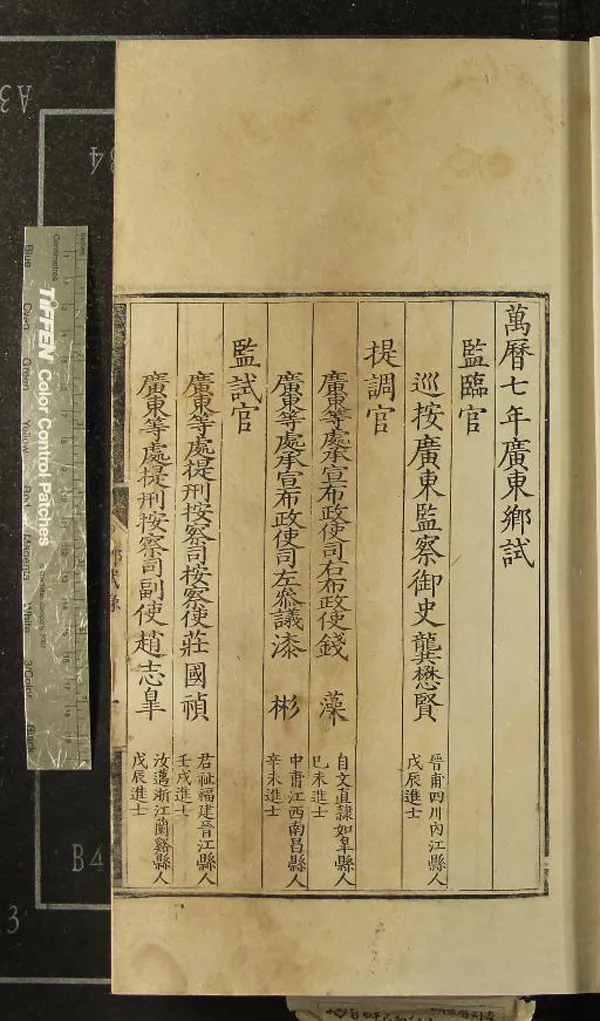 萬曆七年廣東鄉試
監臨官
巡按廣東監察御史龔懋賢
晉甫四川內江縣人
戊辰進士
提調官
廣東等處承宣布政使司右布政使錢 藻
自文直隸如皋縣人
己未進士
廣東等處承宣布政使司左叅議漆 彬
中甫江西南昌縣人
辛未進士
監試官
廣東等處提刑按察司按察使莊國禎
君祉福建晉江縣人
壬戌進士
廣東等處提刑按察司副使趙志皋
汝邁浙江蘭谿縣人
戊辰進士
鄉試錄
一
TIFFEN Color Control Patches
Centimetres
Blue
Cyan
Green
Yellow
Red
Magenta
White
3/Color
Black
A3
B4
3